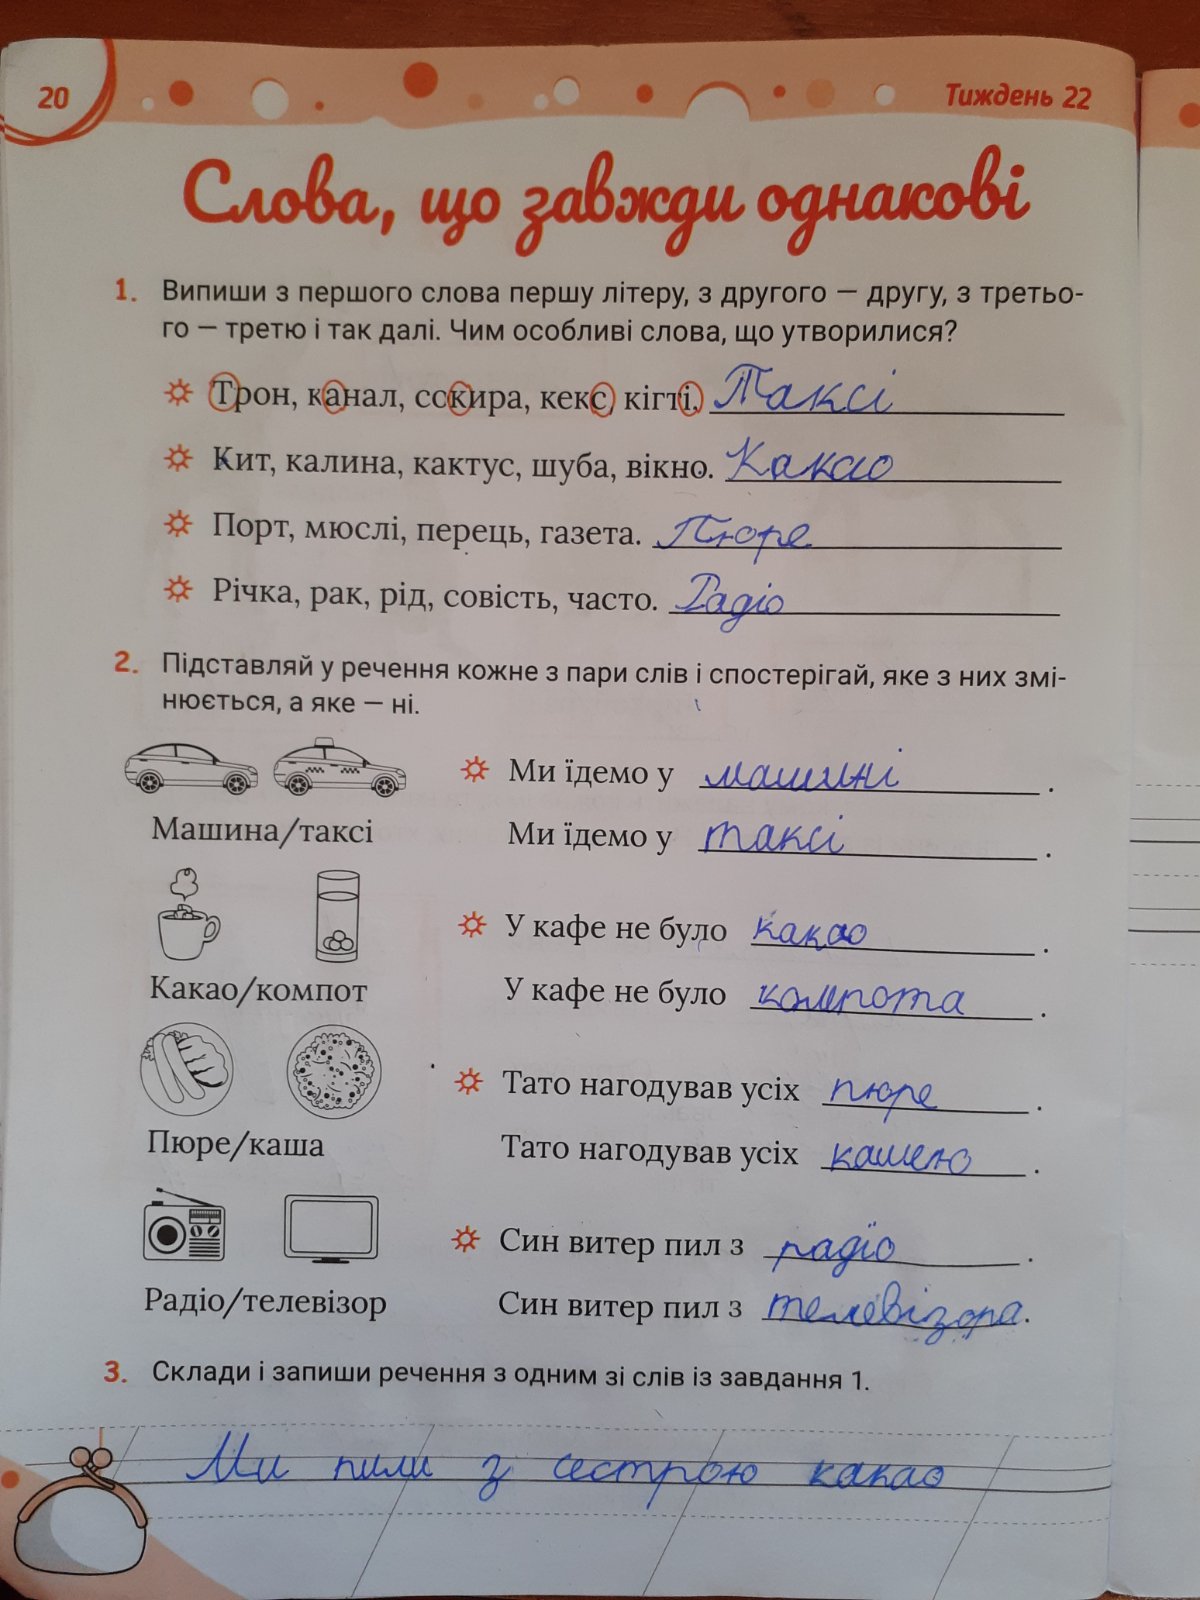 20
Тиждень 22
Слова, що завжди однакові
1. Випиши з першого слова першу літеру, з другого — другу, з третьо-
го — третю і так далі. Чим особливі слова, що утворилися?
Трон, канал, сокира, кекс, кігті. Таксі
Кит, калина, кактус, шуба, вікно. Какао
Порт, мюслі, перець, газета. Пюре
Річка, рак, рід, совість, часто. Радіо
2. Підставляй у речення кожне з пари слів і спостерігай, яке з них змі-
нюється, а яке — ні.
Машина/таксі
Ми їдемо у машині.
Ми їдемо у таксі.
Какао/компот
У кафе не було какао.
У кафе не було компота.
Пюре/каша
Тато нагодував усіх пюре.
Тато нагодував усіх кашею.
Радіо/телевізор
Син витер пил з радіо.
Син витер пил з телевізора.
3. Склади і запиши речення з одним зі слів із завдання 1.
Ми пили з сестрою какао